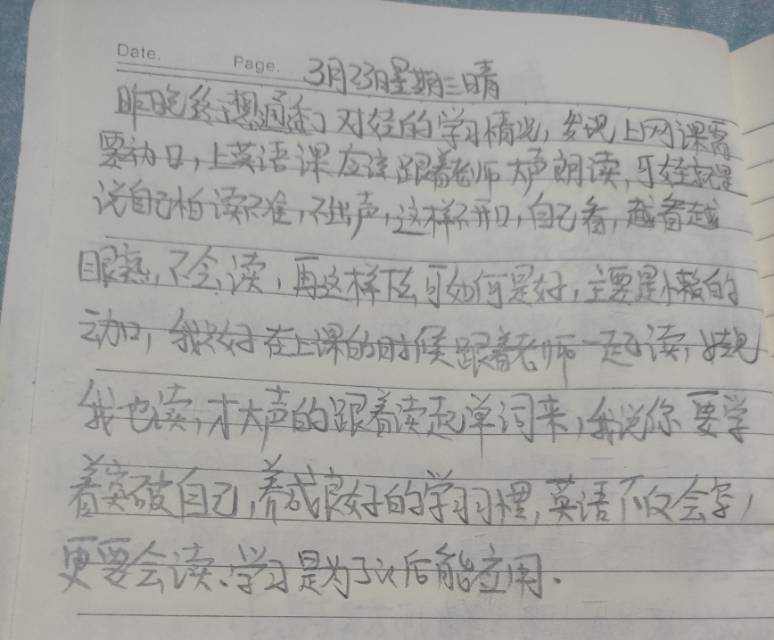 Date. Page. 3月23日星期三晴
昨晚终想通了对娃的学习情况,发现上网课需
要动口,上英语课应该跟着老师大声朗读,可娃就是
说自己怕读不准,不出声,这样不开口,自己看,越看越
眼熟,不会读,再这样下去可如何是好,主要是小赖的
动口,我只好在上课的时候跟着老师一起读,娃见
我也读,才大声的跟着读起单词来,我说你要学
着突破自己,养成良好的学习习惯,英语不仅会写,
更要会读、学习是为了以后能应用.